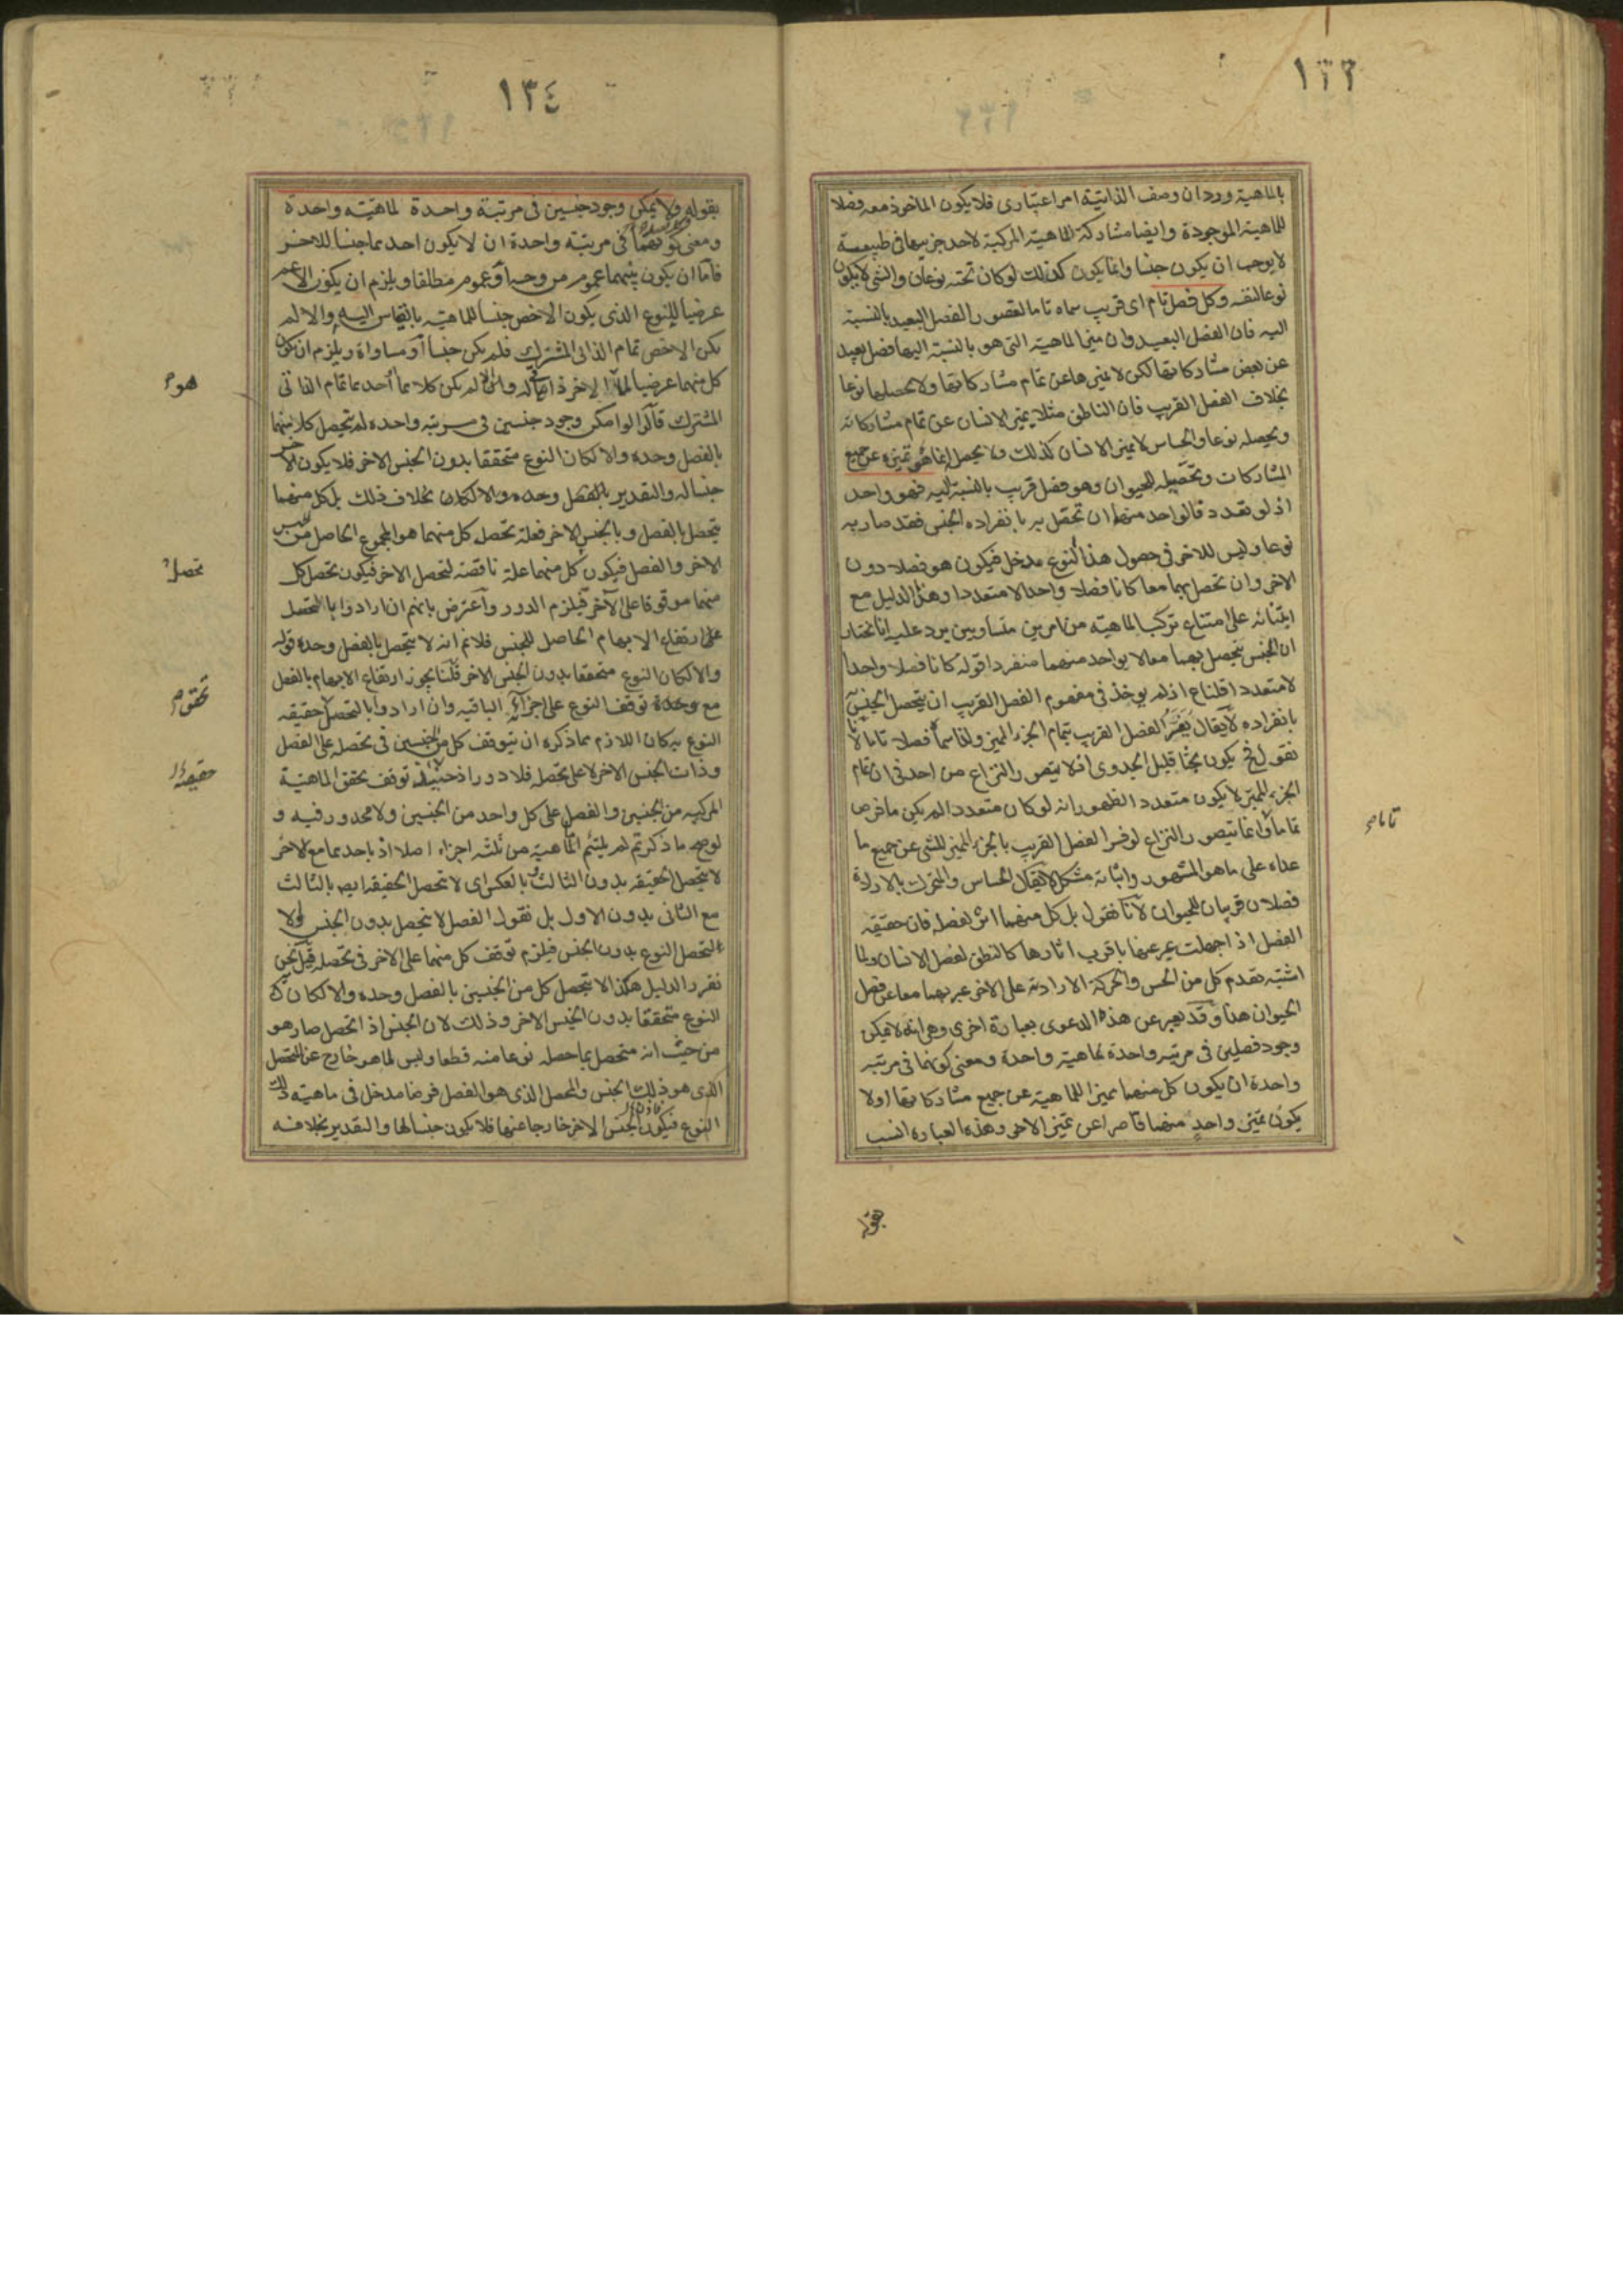 ١٣٣
بالماهية ورد ان وصف الذاتية امر اعتباري فلا يكون الماخوذ معه فصلا
للماهية الموجودة وايضا مشاركة الماهية المركبة لاحد جزييها في طبيعة
لا يوجب ان يكون جنسا وانما يكون كذلك لو كان تحته نوعان والشي لا يكون
نوعا لنفسه وكل فصل تام اى قريب سماه تاما لقصور الفصل البعيد بالنسبة
اليه فان الفصل البعيد وان ميز الماهية التي هو بالنسبة اليها فصل بعيد
عن بعض مشاركاتها لكن لا يميزها عن تمام مشاركاتها ولا يحصلها نوعا
بخلاف الفصل القريب فان الناطق مثلا يميز الانسان عن تمام مشاركاته
ويحصله نوعا والحساس لا يميز الانسان كذلك ولا يحصل انما هو تميزه عن جميع
المشاركات وتحصيله للحيوان وهو فصل قريب بالنسبة اليه فهو واحد
اذ لو تعدد فالواحد منهما ان تحصل به بانفراده الجنس فقد صار به
نوعا وليس للاخر في حصول هذا النوع مدخل فيكون هو فصلا دون
الاخر وان تحصل بهما معا كانا فصلا واحدا لا متعددا وهذا الدليل مع
ابتنائه على امتناع تركب الماهية من امرين متساويين يرد عليه انا نختار
ان الجنس يتحصل بهما معا لا بواحد منهما منفردا قوله كانا فصلا واحدا
لا متعددا قلنا ع اذ لم يوخذ في مفهوم الفصل القريب ان يتحصل الجنس
بانفراده لا يقال يفسر الفصل القريب بتمام الجزء المميز ولذا سماه فصلا تاما لانا
نقول فح يكون بحثا قليل الجدوى اذ لا يتصور النزاع من احد في ان تمام
الجزء المميز لا يكون متعدد الظهور انه لو كان متعددا لم يكن ما فرض
تماما وانما يتصور النزاع لو فسر الفصل القريب بالجزء المميز للشي عن جميع ما
عداه على ما هو المشهور واثباته مشكل لا يقال الحساس والمتحرك بالارادة
فصلان قريبان للحيوان لانا نقول بل كل منهما اثر لفصله فان حقيقة
الفصل اذا جهلت عبر عنها باقرب اثارها كالنطق لفصل الانسان ولما
اشتبه تقدم كل من الحس والحركة الارادية على الاخر عبر بهما معا عن فصل
الحيوان هنا وقد يعبر عن هذه الدعوى بعبارة اخرى وهي انه لا يمكن
وجود فصلين في مرتبة واحدة لماهية واحدة ومعنى كونهما في مرتبة
واحدة ان يكون كل منهما مميزا للماهية عن جميع مشاركاتها اولا
يكون تميز واحد منهما قاصرا عن تميز الاخر وهذه العبارة انسب
تاما م
بقوله
١٣٤
بقوله ولا يمكن وجود جنسين في مرتبة واحدة لماهية واحدة
ومعنى كونهما في مرتبة واحدة ان لا يكون احدهما جنسا للاخر
فاما ان يكون بينهما عموم من وجه او عموم مطلقا ويلزم ان يكون الاعم
عرضيا للنوع الذي يكون الاخص جنسا للماهية بالقياس اليه والا لم
يكن الاخص تمام الذاتي المشترك فلم يكن جنسا او مساواة ويلزم ان يكون
كل منهما عرضيا الاخر ذاتيا له والا لم يكن كلاهما احدهما تمام الذاتي
المشترك قالوا لو امكن وجود جنسين في مرتبة واحدة لم يتحصل كلا منهما
بالفصل وحده والا لكان النوع متحققا بدون الجنس الاخر فلا يكون الاخر
جنسا له والتقدير بالفصل وحده والا لكان بخلاف ذلك بل كل منهما
يتحصل بالفصل وبالجنس الاخر فعلة تحصل كل منهما هو المجموع الحاصل من الجنس
الاخر والفصل فيكون كل منهما علة ناقصة لتحصل الاخر فيكون تحصل كل
منهما موقوفا على الاخر فيلزم الدور واعترض بانهم ان ارادوا بالتحصل
على ارتفاع الابهام الحاصل للجنس فلا نم انه لا يتحصل بالفصل وحده قوله
والا لكان النوع متحققا بدون الجنس الاخر قلنا يجوز ارتفاع الابهام بالفصل
مع وحدة توقف النوع على اجزائه الباقية وان ارادوا بالتحصل حقيقة
النوع كان اللازم مما ذكره ان يتوقف كل من الجنسين في تحصله على الفصل
وذات الجنس الاخر لا على تحصله فلا دور اذ حينئذ توقف تحقق الماهية
المركبة من الجنسين والفصل على كل واحد من الجنسين ولا محذور فيه و
لو صح ما ذكرتم لم يلتئم الماهية من ثلثة اجزاء اصلا اذ باحدهما مع الاخر
لا يتحصل الحقيقة بدون الثالث وبالعكس اى لا تحصل الحقيقة ايض بالثالث
مع الثاني بدون الاول بل نقول الفصل لا يتحصل بدون الجنس والا
لتحصل النوع بدون الجنس فيلزم توقف كل منهما على الاخر في تحصله قيل نحن
نقرر الدليل هكذا لا يتحصل كل من الجنسين بالفصل وحده والا لكان ذلك
النوع متحققا بدون الجنس الاخر وذلك لان الجنس اذ اتحصل صار هو
من حيث انه متحصل بما حصله نوعا منه قطعا وليس لما هو خارج عن المتحصل
الذي هو ذلك الجنس والمحصل الذي هو الفصل فرضا مدخل في ماهية ذلك
النوع فيكون الجنس الاخر خارجا عنها فلا يكون جنسا لها والتقدير بخلافه
هو م
تحصل
تحقق م
حقيقة